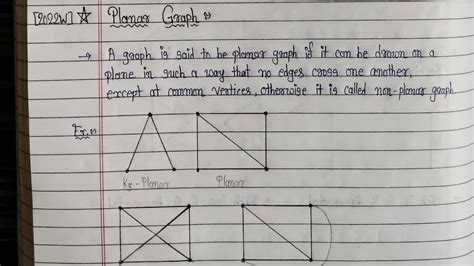 [2022W] ☆ Planar Graph
→ A graph is said to be planar graph if it can be drawn on a
plane in such a way that no edges cross one another,
except at common vertices, otherwise it is called non-planar graph
Ex.
K3 - Planar Planar